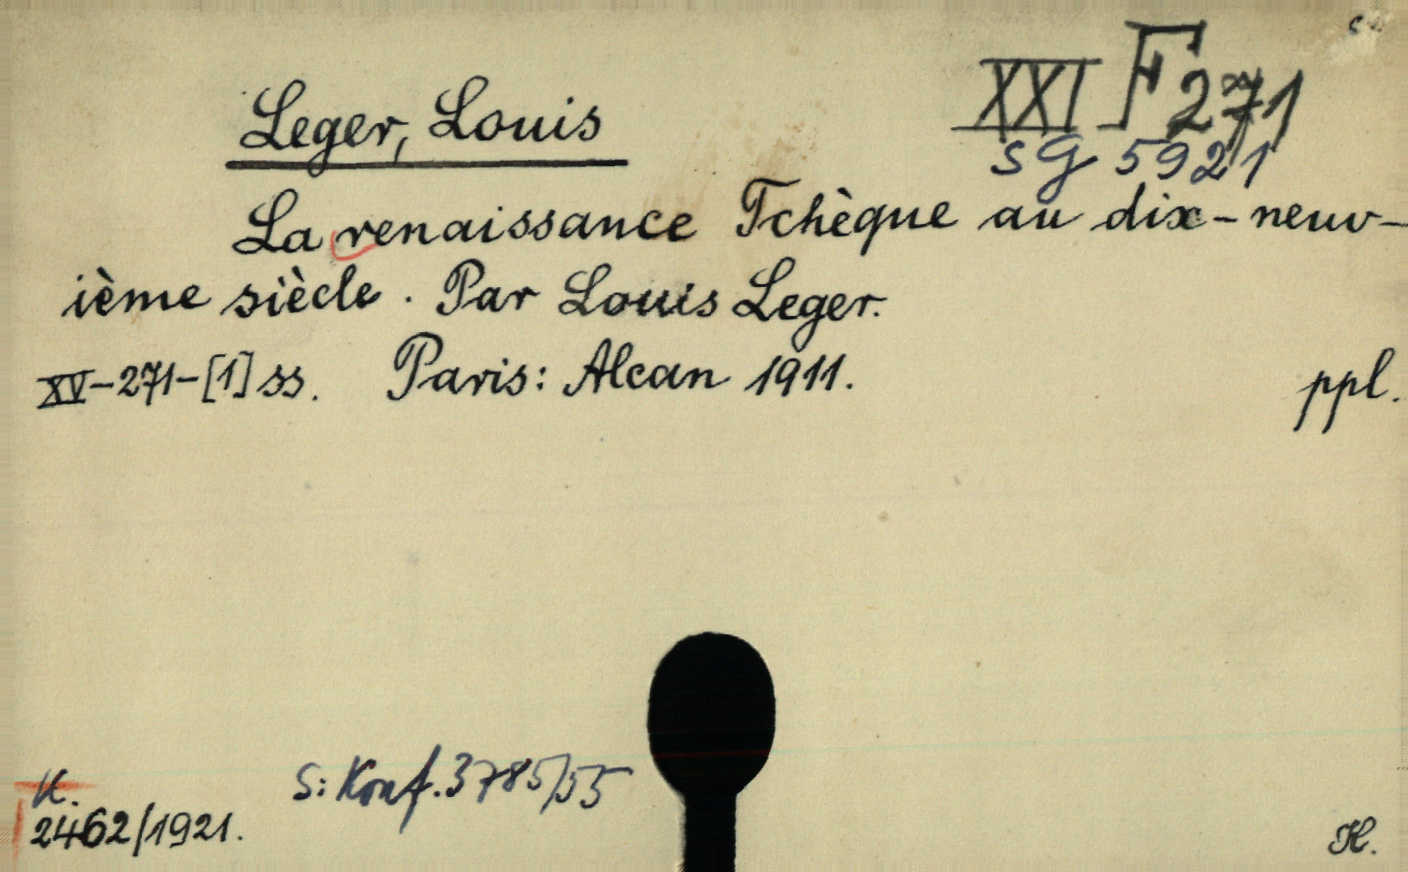 XXI F 271
Leger, Louis
SG 5921
La renaissance Tchèque au dix-neuv-
ième siècle. Par Louis Leger.
XV-271-[1] ss. Paris: Alcan 1911. ppl.
K. S: Konf. 3785/55
2462/1921. H.